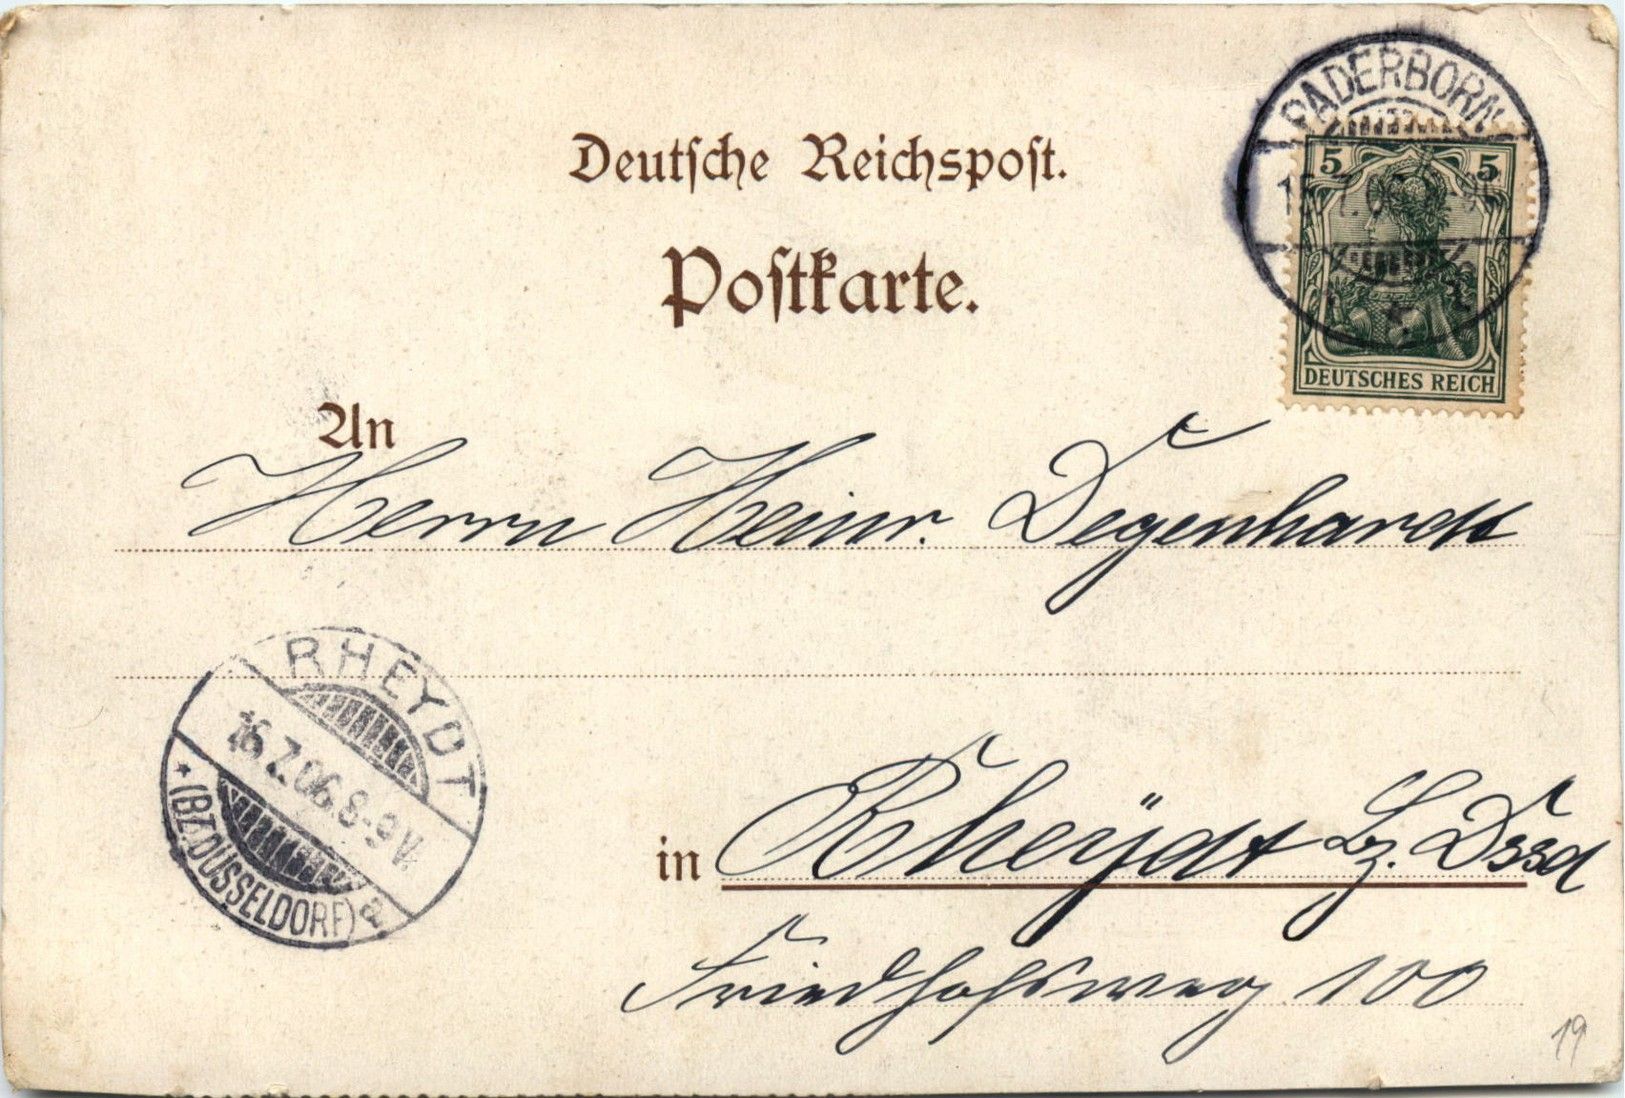 Deutsche Reichspost.
Postkarte.
PADERBORN
5 5
DEUTSCHES REICH
An
Herrn Heinr. Degenhardt
RHEYDT
16.7.06.8-9V.
* (BZ.DÜSSELDORF) a
in Rheÿdt Bz. Dssd
Friedhofsweg 100
19